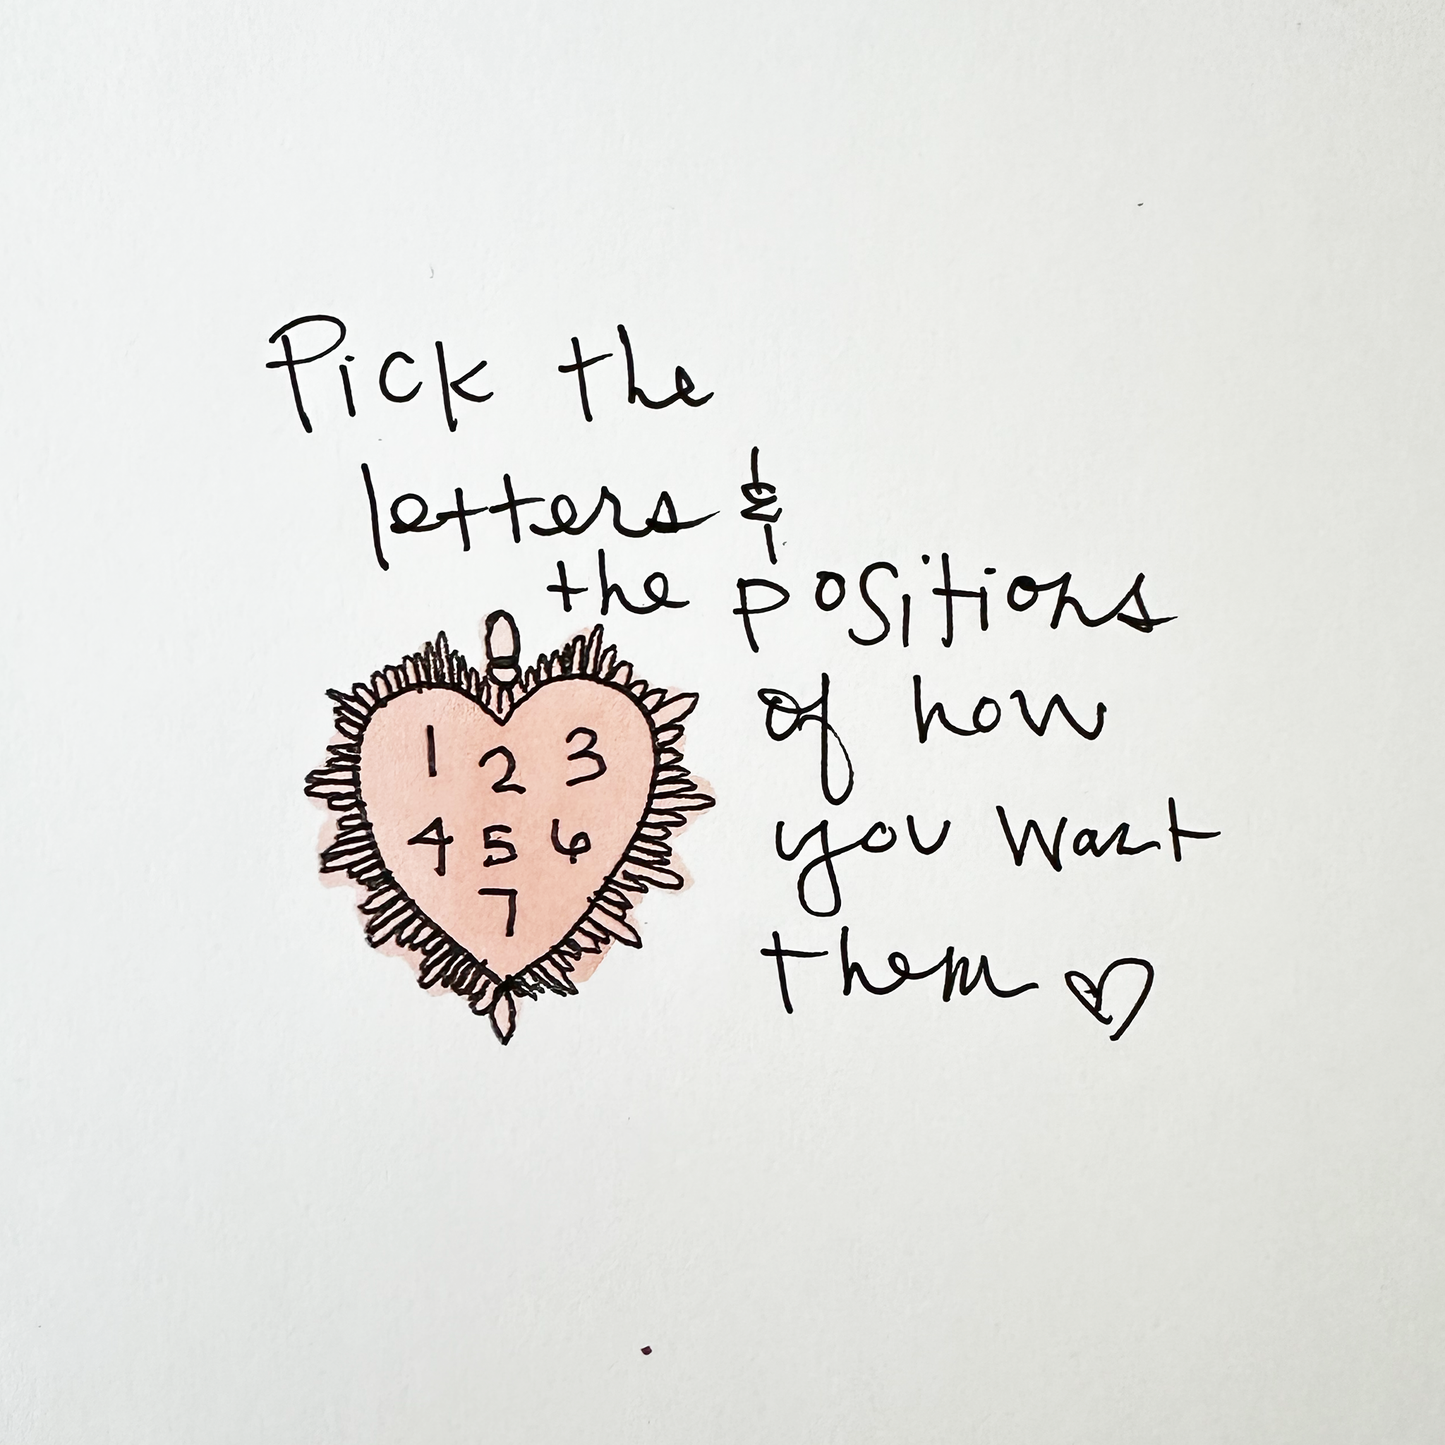 Pick the
letters &
the positions
of how
you want
them
1 2 3
4 5 6
7